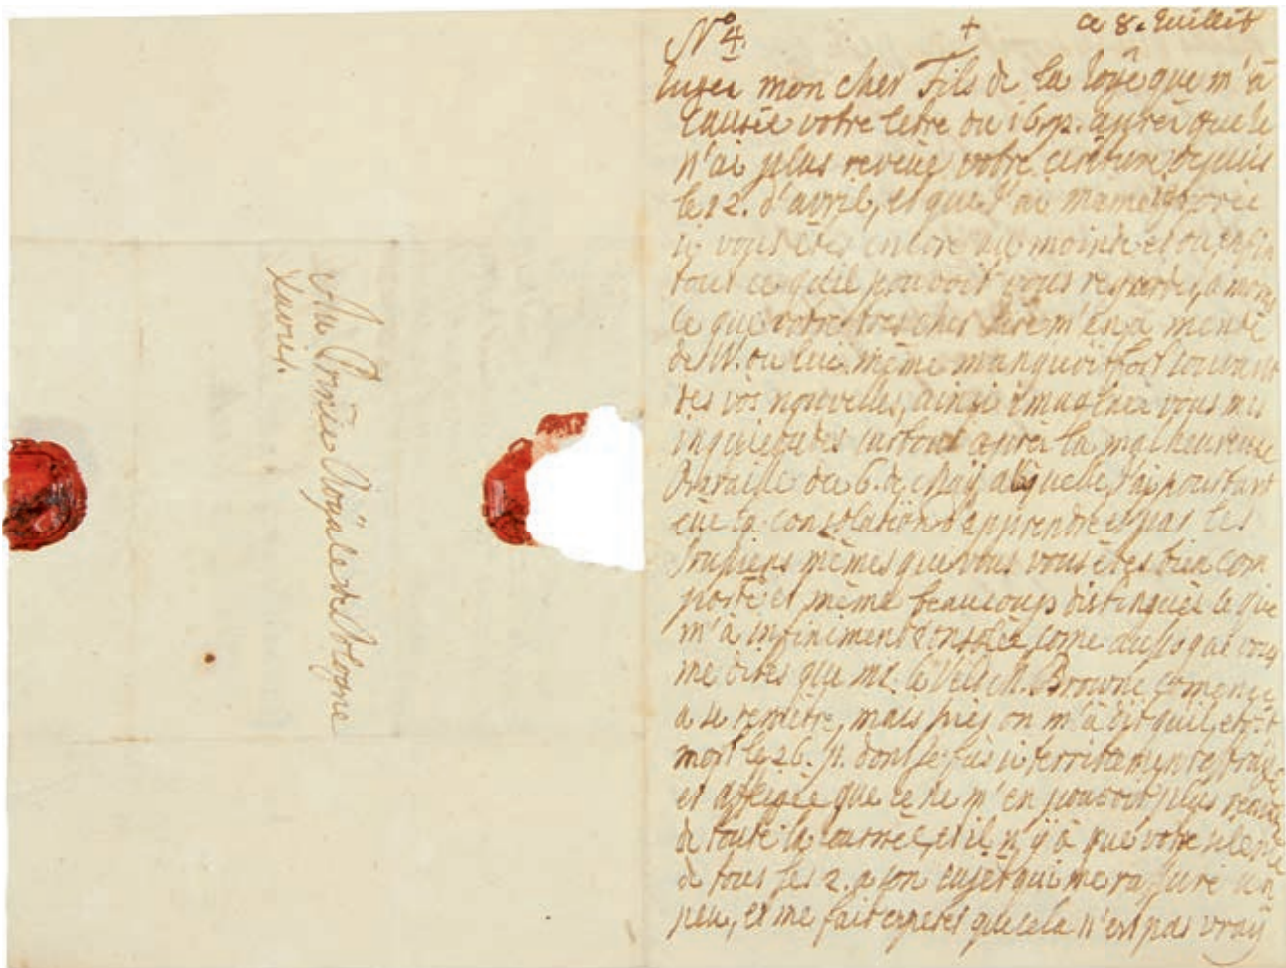 Au Prince Roÿale de Pologne
Xavier.
Nº 4. + ce 8. Juillet
Jugez mon cher Fils de la Joÿe que m'à
causée votre letre du 16 p. après que Je
n'ai plus reveüe votre ecriture depuis
le 12. d'avril, et que J'ai
si vous etes encore au moins et ou enfin
tout ce qu'il pouvoit vous regarder, a moins
ce que votre tres cher Pere m'en a mandé
de W. ou lui même manquoit fort souvant
des vos nouvelles, ainsi vous mes
inquietudes surtout après la malheureuse
Bataille du 6. de Maÿ J'ai pourtant
eüe la consolation d'apprendre par les
mêmes que vous vous etes bien com
porté et même beaucoup distinguée ce que
m'à infiniment consolée come aussi que vous
me dites que Mr. le Velt M. Browne comence
a se remetre, mais puis on m'à dit qu'il etoit
mort le 26. p. dont Je fus si terriblement
et affligée que Je ne m'en pouvoit plus
de toute la Journée, et il n'ÿ à que votre silence
de tous les 2. a son sujet qui me rassure un
peu, et me fait esperer que cela n'est pas vraÿ